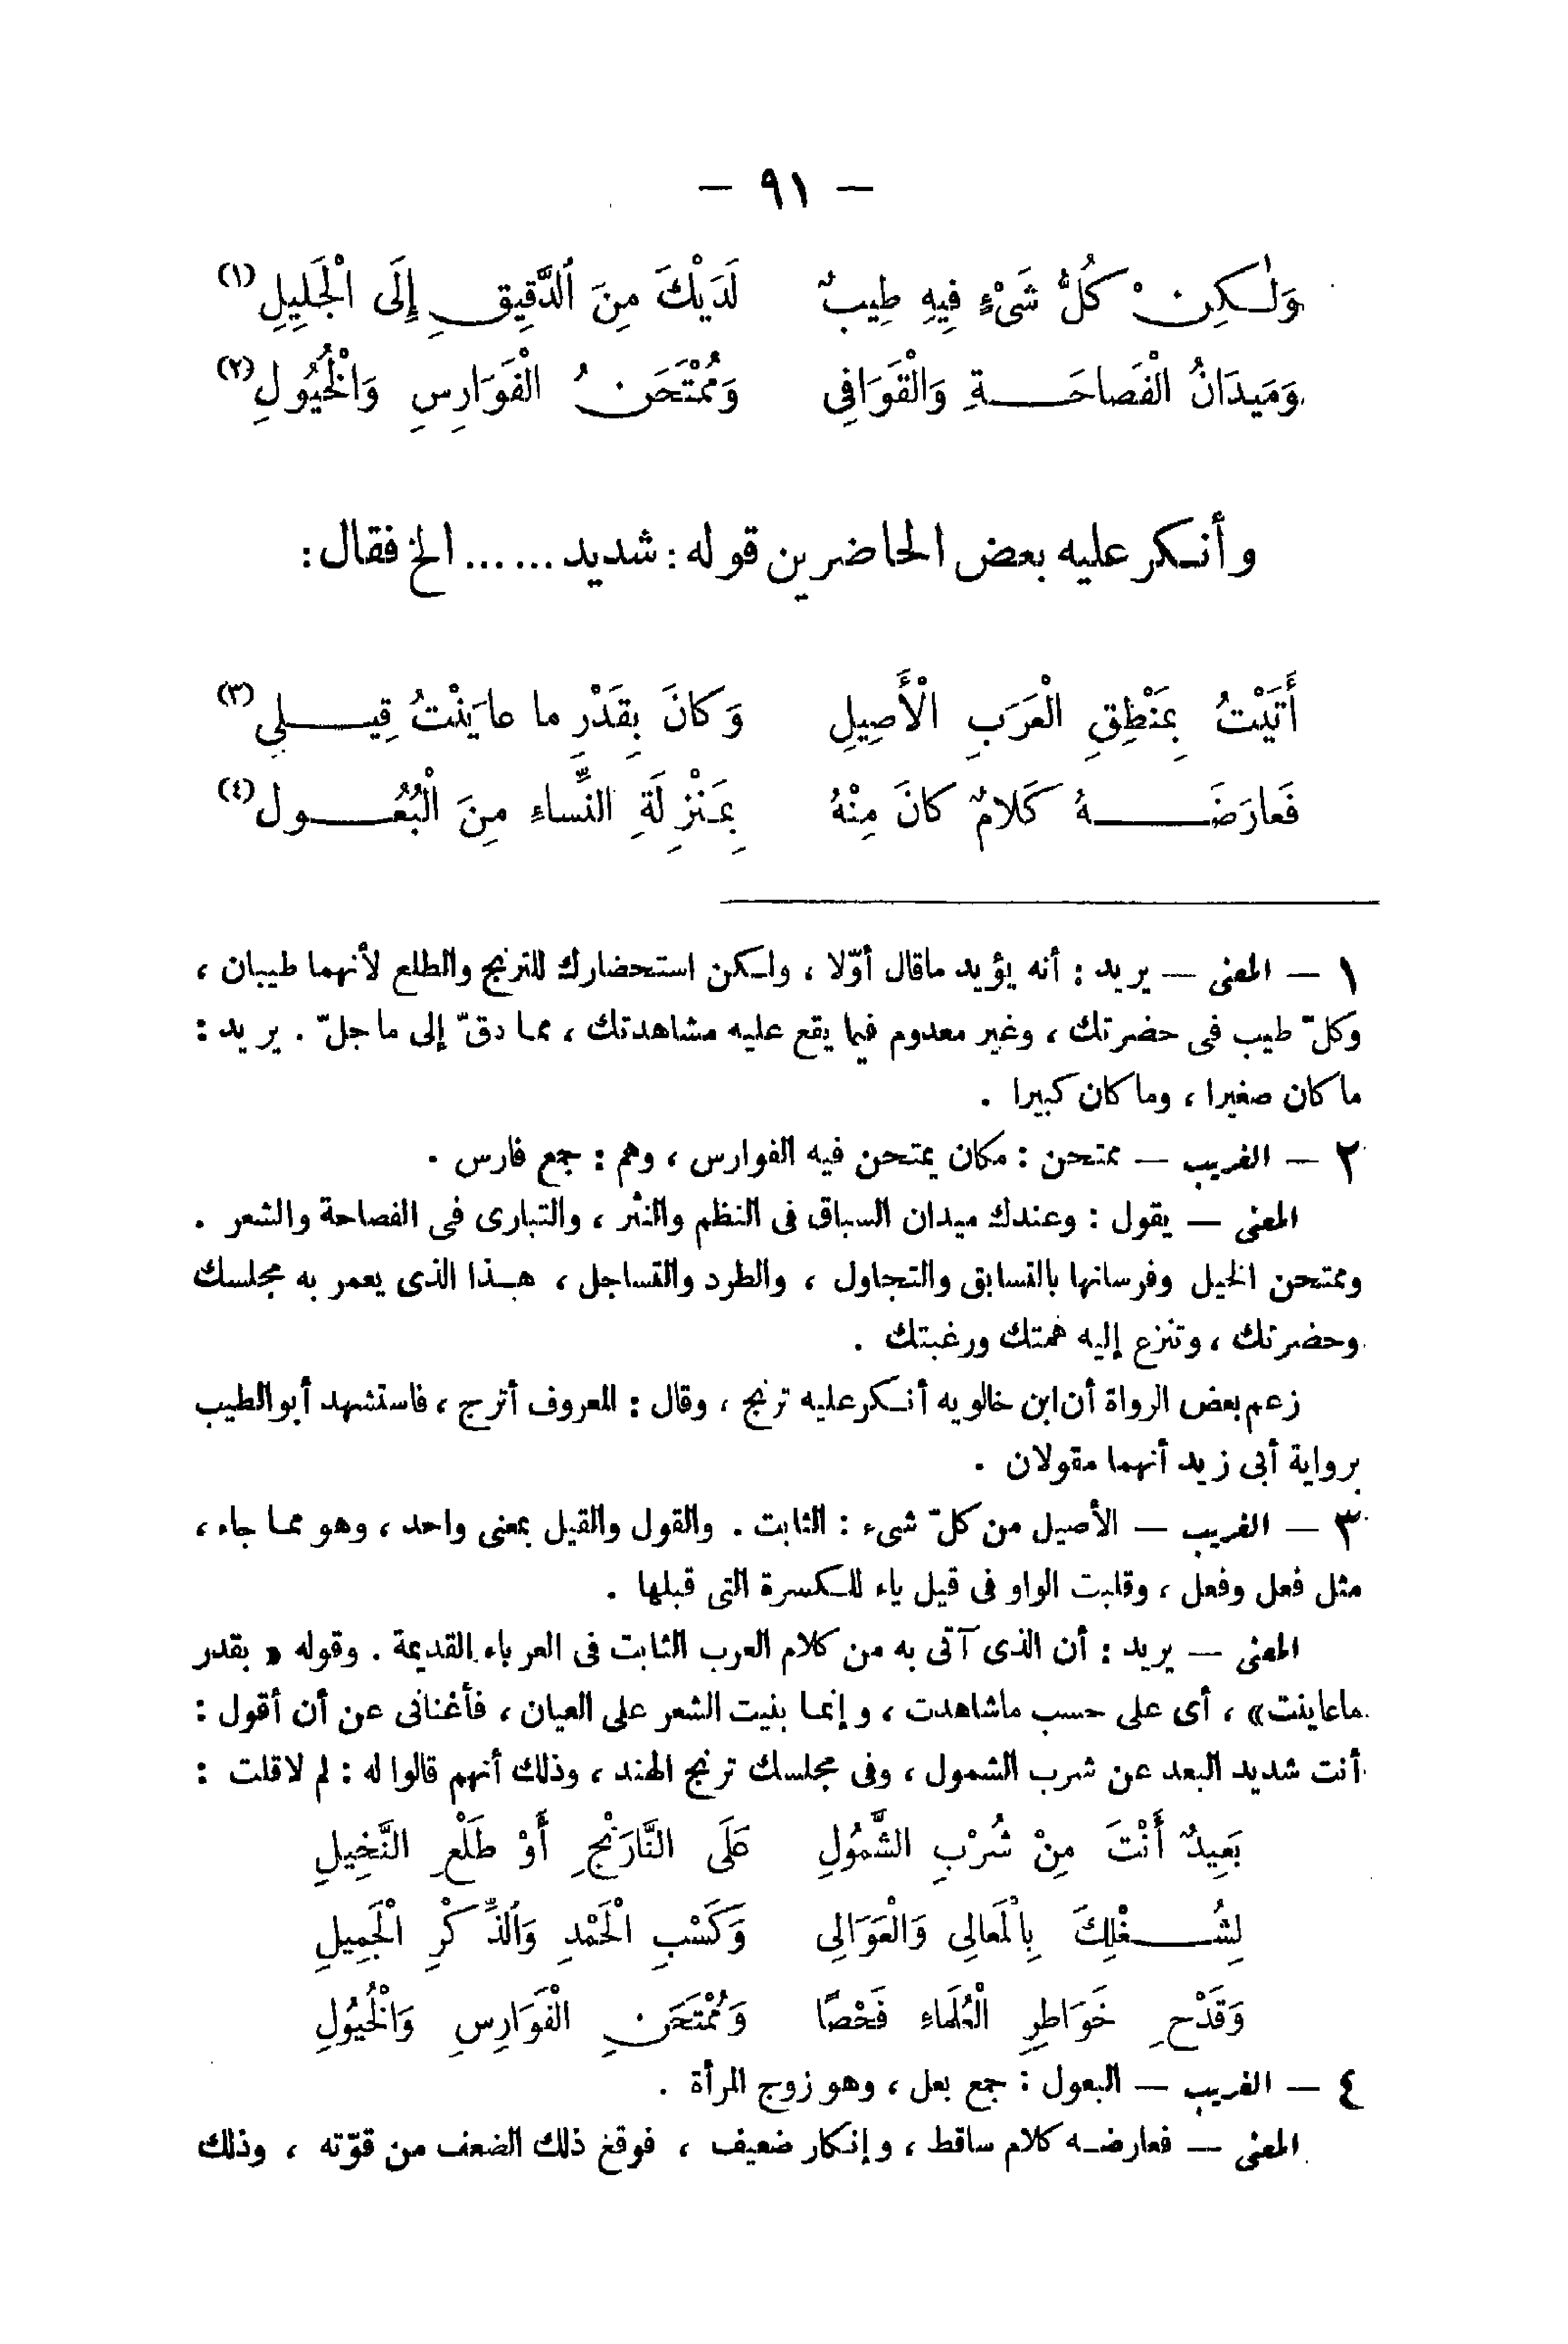 — ٩١ —
وَلٰكِنْ كُلُّ شَىْءٍ فِيهِ طِيبٌ لَدَيْكَ مِنَ ٱلدَّقِيقِ إِلَى الْجَلِيلِ (١)
وَمَيدَانُ الْفَصاحَةِ وَالْقَوَافِى وَمُمْتَحَنُ الْفَوَارِسِ وَالْخُيُولِ (٢)
وأنكر عليه بعض الحاضرين قوله : شديد ...... الخ فقال :
أَتَيْتُ بِمَنْطِقِ الْعَرَبِ الْأَصِيلِ وَكانَ بِقَدْرِ ما عايَنْتُ قِيلِي (٣)
فَعارَضَهُ كَلامٌ كانَ مِنْهُ بِمَنْزِلَةِ النِّساءِ مِنَ الْبُعُولِ (٤)
١ — المعنى — يريد : أنه يؤيد ماقال أوّلا ، ولكن استحضارك للترنج والطلع لأنهما طيبان ،
وكلّ طيب فى حضرتك ، وغير معدوم فيما يقع عليه مشاهدتك ، مما دقّ إلى ما جلّ . يريد :
ما كان صغيرا ، وما كان كبيرا .
٢ — الغريب — ممتحن : مكان يمتحن فيه الفوارس ، وهم : جمع فارس .
المعنى — يقول : وعندك ميدان السباق فى النظم والنثر ، والتبارى فى الفصاحة والشعر .
وممتحن الخيل وفرسانها بالتسابق والتجاول ، والطرد والتساجل ، هذا الذى يعمر به مجلسك
وحضرتك ، وتنزع إليه همتك ورغبتك .
زعم بعض الرواة أن ابن خالويه أنكر عليه ترنج ، وقال : المعروف أترج ، فاستشهد أبو الطيب
برواية أبى زيد أنهما مقولان .
٣ — الغريب — الأصيل من كلّ شىء : الثابت . والقول والقيل بمعنى واحد ، وهو مما جاء ،
مثل فعل وفعل ، وقلبت الواو فى قيل ياء للكسرة التى قبلها .
المعنى — يريد : أن الذى آتى به من كلام العرب الثابت فى العرباء القديمة . وقوله « بقدر
ماعاينت » ، أى على حسب ماشاهدت ، وإنما بنيت الشعر على العيان ، فأغنانى عن أن أقول :
أنت شديد البعد عن شرب الشمول ، وفى مجلسك ترنج الهند ، وذلك أنهم قالوا له : لم لا قلت :
بَعِيدٌ أَنْتَ مِنْ شُرْبِ الشَّمُولِ عَلَى النَّارَنْجِ أَوْ طَلْعِ النَّخِيلِ
لِشُغْلِكَ بِالْمَعالِى وَالْعَوَالِى وَكَسْبِ الْحَمْدِ وَٱلذِّكْرِ الْجَمِيلِ
وَقَدْحِ خَوَاطِرِ الْعُلَمَاءِ فَحْصًا وَمُمْتَحَنِ الْفَوَارِسِ وَالْخُيُولِ
٤ — الغريب — البعول : جمع بعل ، وهو زوج المرأة .
المعنى — فعارضه كلام ساقط ، وإنكار ضعيف ، فوقع ذلك الضعف من قوّته ، وذلك